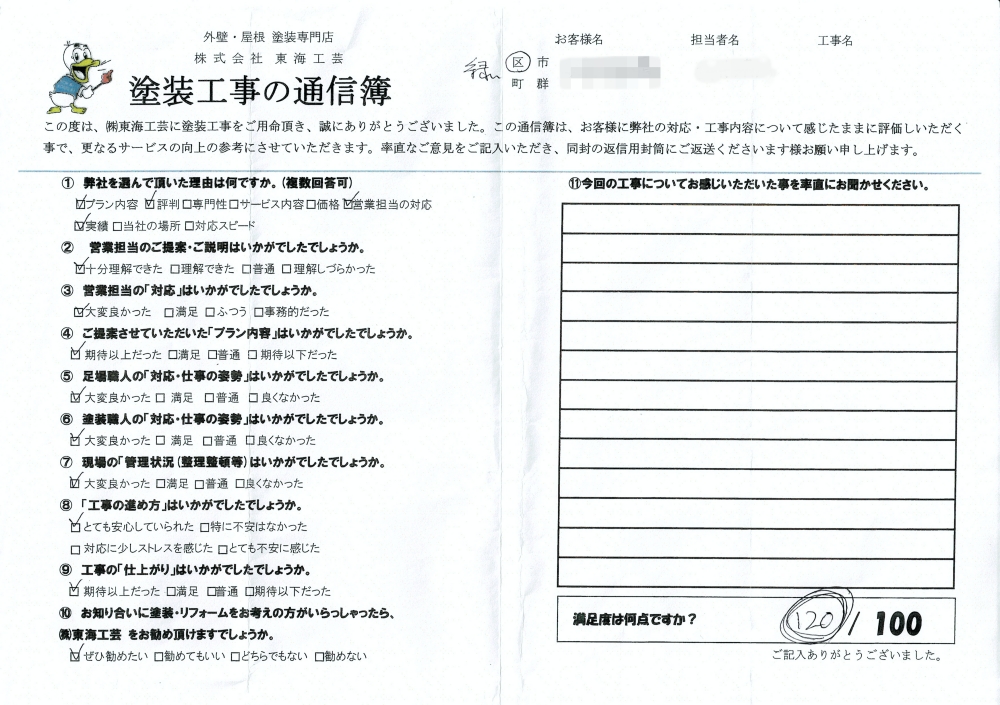 外壁・屋根 塗装専門店
株式会社 東海工芸
塗装工事の通信簿
お客様名 担当者名 工事名
緑 区 市
町 群
この度は、㈱東海工芸に塗装工事をご用命頂き、誠にありがとうございました。この通信簿は、お客様に弊社の対応・工事内容について感じたままに評価しいただく
事で、更なるサービスの向上の参考にさせていただきます。率直なご意見をご記入いただき、同封の返信用封筒にご返送くださいます様お願い申し上げます。
① 弊社を選んで頂いた理由は何ですか。(複数回答可)
☑プラン内容 ☑評判 □専門性 □サービス内容 □価格 ☑営業担当の対応
☑実績 □当社の場所 □対応スピード
② 営業担当のご提案・ご説明はいかがでしたでしょうか。
☑十分理解できた □理解できた □普通 □理解しづらかった
③ 営業担当の「対応」はいかがでしたでしょうか。
☑大変良かった □満足 □ふつう □事務的だった
④ ご提案させていただいた「プラン内容」はいかがでしたでしょうか。
☑期待以上だった □満足 □普通 □期待以下だった
⑤ 足場職人の「対応・仕事の姿勢」はいかがでしたでしょうか。
☑大変良かった □ 満足 □普通 □良くなかった
⑥ 塗装職人の「対応・仕事の姿勢」はいかがでしたでしょうか。
☑大変良かった □ 満足 □普通 □良くなかった
⑦ 現場の「管理状況(整理整頓等)はいかがでしたでしょうか。
☑大変良かった □満足 □普通 □良くなかった
⑧ 「工事の進め方」はいかがでしたでしょうか。
☑とても安心していられた □特に不安はなかった
□ 対応に少しストレスを感じた □とても不安に感じた
⑨ 工事の「仕上がり」はいかがでしたでしょうか。
☑期待以上だった □満足 □普通 □期待以下だった
⑩ お知り合いに塗装・リフォームをお考えの方がいらっしゃったら、
㈱東海工芸 をお勧め頂けますでしょうか。
☑ぜひ勧めたい □勧めてもいい □どちらでもない □勧めない
⑪今回の工事についてお感じいただいた事を率直にお聞かせください。
満足度は何点ですか? 120 / 100
ご記入ありがとうございました。